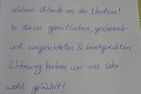 schönen Urlaub an der Nordsee!
In dieser gemütlichen, geschmack-
voll eingerichteten & landgerechten
Wohnung haben wir uns sehr
wohl gefühlt!